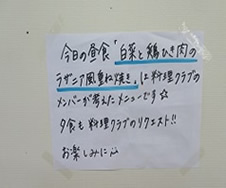 今日の昼食「白菜と鶏ひき肉の
ラザニア風重ね焼き」に料理クラブの
メンバーが考えたメニューです☆
夕食も料理クラブのリクエスト!!
お楽しみに♪